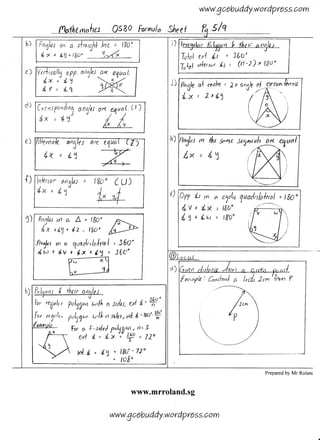 www.gcebuddy.wordpress.com
Mathematics O580 Formula Sheet Pg 5/9
b) Angles on a straight line = 180°
∠x + ∠y = 180°
c) Vertically opp. angles are equal.
∠x = ∠y
∠p = ∠q
d) Corresponding angles are equal (F)
∠x = ∠y
e) Alternate angles are equal (Z)
∠x = ∠y
f) Interior angles = 180° (U)
∠x + ∠y
g) Angles in a Δ = 180°
∠x + ∠y + ∠z = 180°
Angles in a quadrilateral = 360°
∠w + ∠v + ∠x + ∠y = 360°
h) Polygons & their angles
For regular polygon with n sides, ext ∠ = 360°/n
For regular polygon with n sides, int ∠ = 180° - 360°/n
Example For a 5-sided polygon, n = 5
ext ∠ = ∠x = 360/5 = 72°
int ∠ = ∠y = 180° - 72°
= 108°
i) Irregular Polygon & their angles
Total ext ∠s = 360°
Total interior ∠s = (n-2) × 180°
j) Angle at centre = 2 × angle at circumference
∠x = 2 × ∠y
k) Angles in the same segments are equal
∠x = ∠y
l) Opp ∠s in a cyclic quadrilateral = 180°
∠v + ∠x = 180°
∠y + ∠w = 180°
Locus
a) Given distance from a given point
Example: Construct a locus 2cm from P
2cm
P
Prepared by Mr Rolam
www.mrroland.sg
www.gcebuddy.wordpress.com